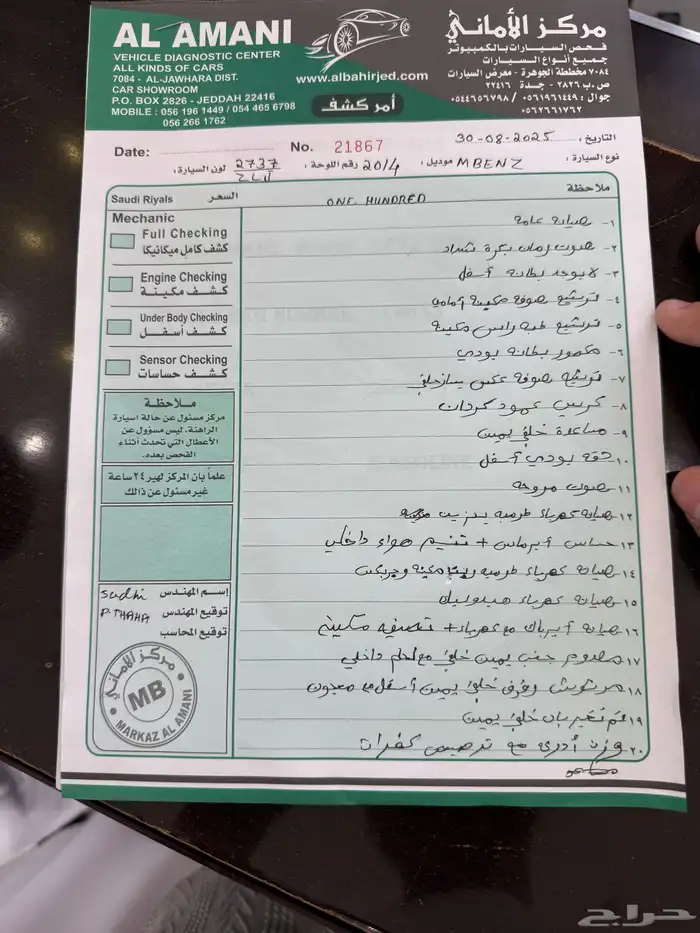 AL AMANI
VEHICLE DIAGNOSTIC CENTER
ALL KINDS OF CARS
7084 - AL-JAWHARA DIST.
CAR SHOWROOM
P.O. BOX 2826 - JEDDAH 22416
MOBILE : 056 196 1449 / 054 465 6798
056 266 1762
www.albahirjed.com
أمر كشف
مركز الأماني
فحص السيارات بالكمبيوتر
جميع أنواع السيارات
٧٠٨٤ مخططة الجوهرة - معرض السيارات
ص.ب ٢٨٢٦ - جدة ٢٢٤١٦
جوال : ٠٥٦١٩٦١٤٤٩ / ٠٥٤٤٦٥٦٧٩٨
٠٥٦٢٦٦١٧٦٢
Date: No. 21867 التاريخ : 30-08-2025
نوع السيارة : MBENZ موديل : 2014 رقم اللوحة : 2737 لون السيارة :
Saudi Riyals السعر ONE HUNDRED ملاحظة
Mechanic
Full Checking
كشف كامل ميكانيكا
Engine Checking
كشف مكينة
Under Body Checking
كشف أسفل
Sensor Checking
كشف حساسات
ملاحظة
مركز مسئول عن حالة اسيارة
الراهنة، ليس مسؤول عن
الأعطال التي تحدث أثناء
الفحص بعده.
علماً بان المركز لهير ٢٤ ساعة
غير مسئول عن ذالك
إسم المهندس Sudhi
توقيع المهندس P.THAHA
توقيع المحاسب
مركز الأماني
MB
MARKAZ AL AMANI
١- صيانه عامه
٢- صوت رمان بكرة شداد
٣- لا يوجد بطانه أسفل
٤- ترشيح صوفة مكينة أمامه
٥- ترشيح طبه راس مكينة
٦- مكسور بطانه بودي
٧- ترشيح صوفة عكس يسار خلفي
٨- كرسي عمود كردان
٩- مساعدة خلفي يمين
١٠- دقه بودي أسفل
١١- صوت مروحه
١٢- صيانه كهرباء طرمبه بنزين
١٣- حساس أيرماس + تنسيم هواء داخلي
١٤- صيانه كهرباء طرمبه زيت مكينه وجربكس
١٥- صيانه كهرباء هيدروليك
١٦- صيانة أيرباك مع كهرباء + تصفيه مكينة
١٧- مصدوم جنب يمين خلفي مع لحام داخلي
١٨- مرشوش رفرف خلفي يمين أسفل معجون
١٩- تم تغير باب خلفي يمين
٢٠- وزن أذرع مع ترصيص كفرات
حراج